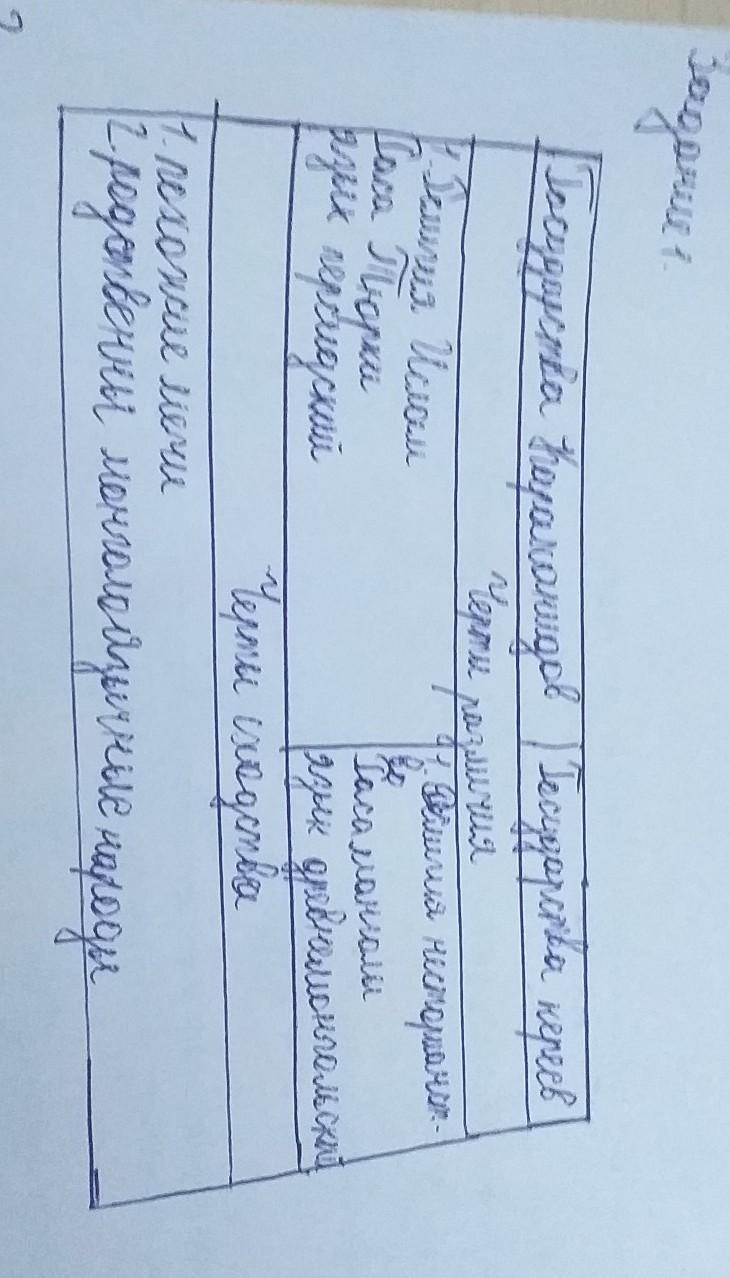 Задание 1.
Государства Караханидов | Государства кереев
Черты различия
1. Религия Ислам
Раса Тюрки
язык персидский
1. Религия несториан-
во
Раса монголы
язык древнемонгольский
Черты сходства
1. похожие мечи
2. родственны монголоязычные народы
2